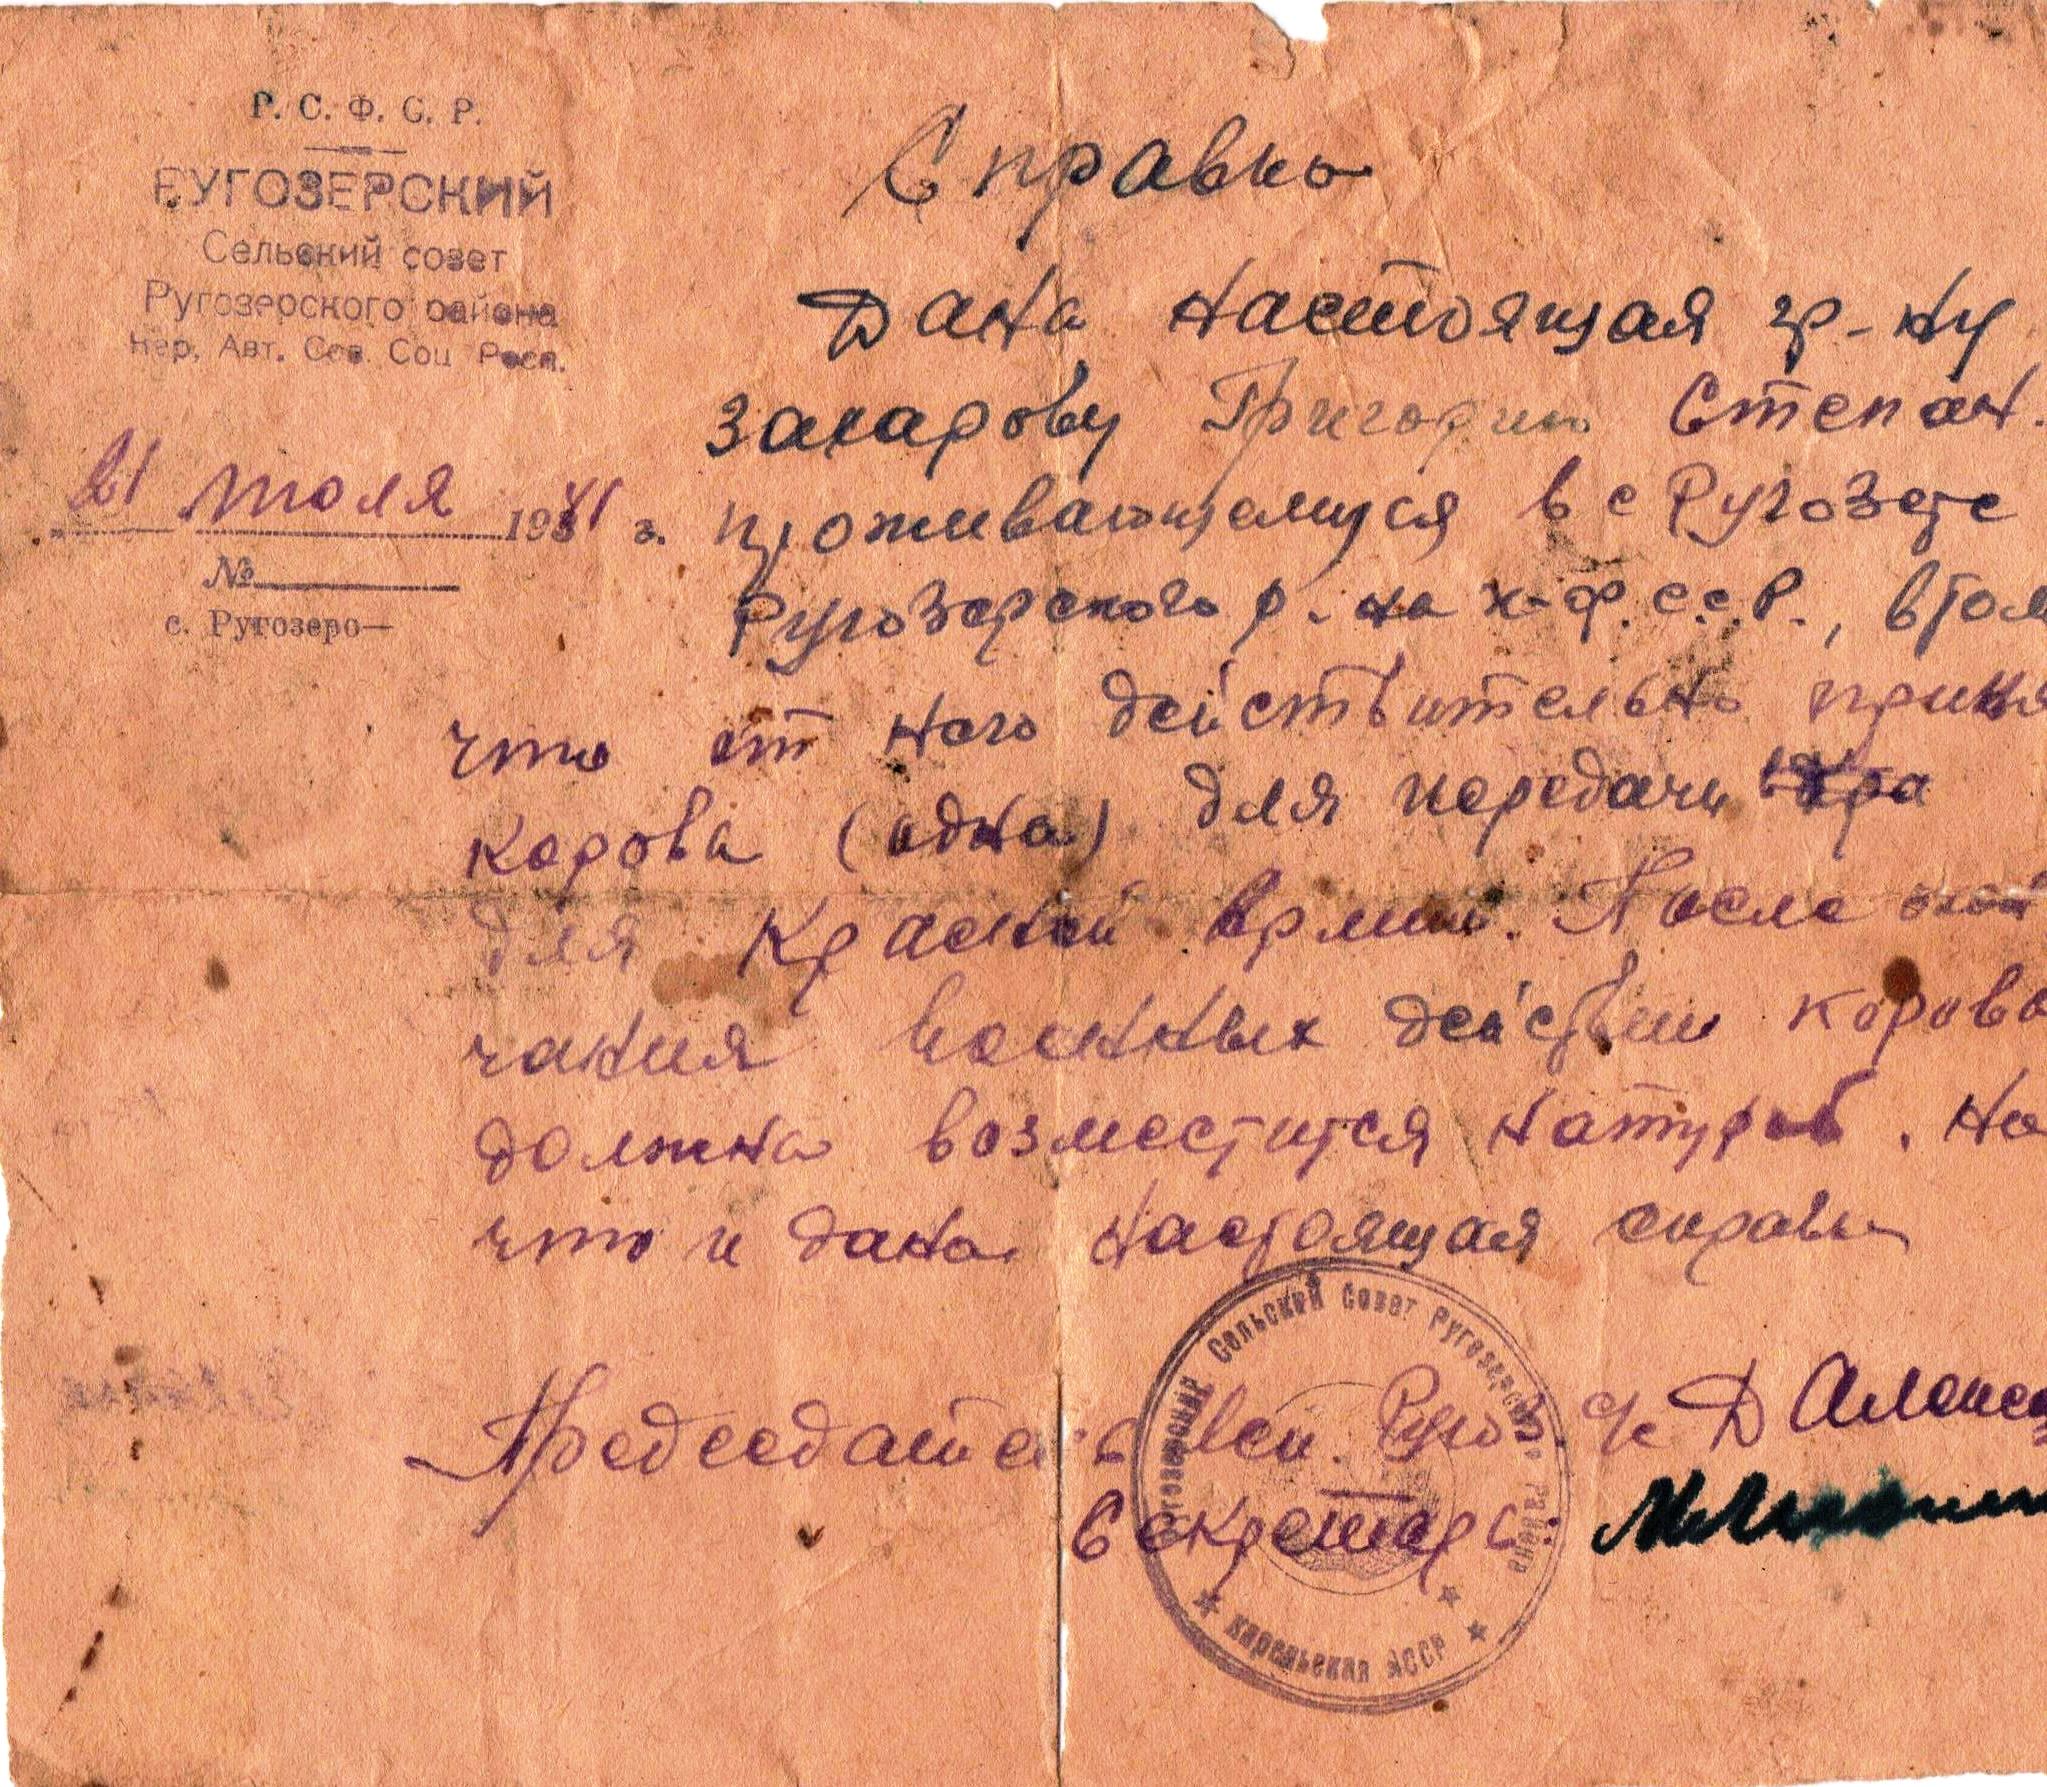 Р. С. Ф. С. Р.
РУГОЗЕРСКИЙ
Сельский совет
Ругозерского района
Кар. Авт. Сов. Соц. Респ.
„ 21 июля 1941 г.
№
с. Ругозеро—
Справка
Дана настоящая гр-ну
Захарову Григорию Степан.
проживающемуся в с Ругозере
Ругозерского р-на К-Ф.С.С.Р., в том
что от него действительно приня
корова (одна) для передачи
для Красной Армии. После окон
чания военных действии корова
должна возместится натурой. На
что и дана настоящая справка
Председатель Исп. Ругоз. с/с Д Алексе
Секретарь:
Ругозерский Сельский Совет Ругозерского района
★ Карельская АССР ★